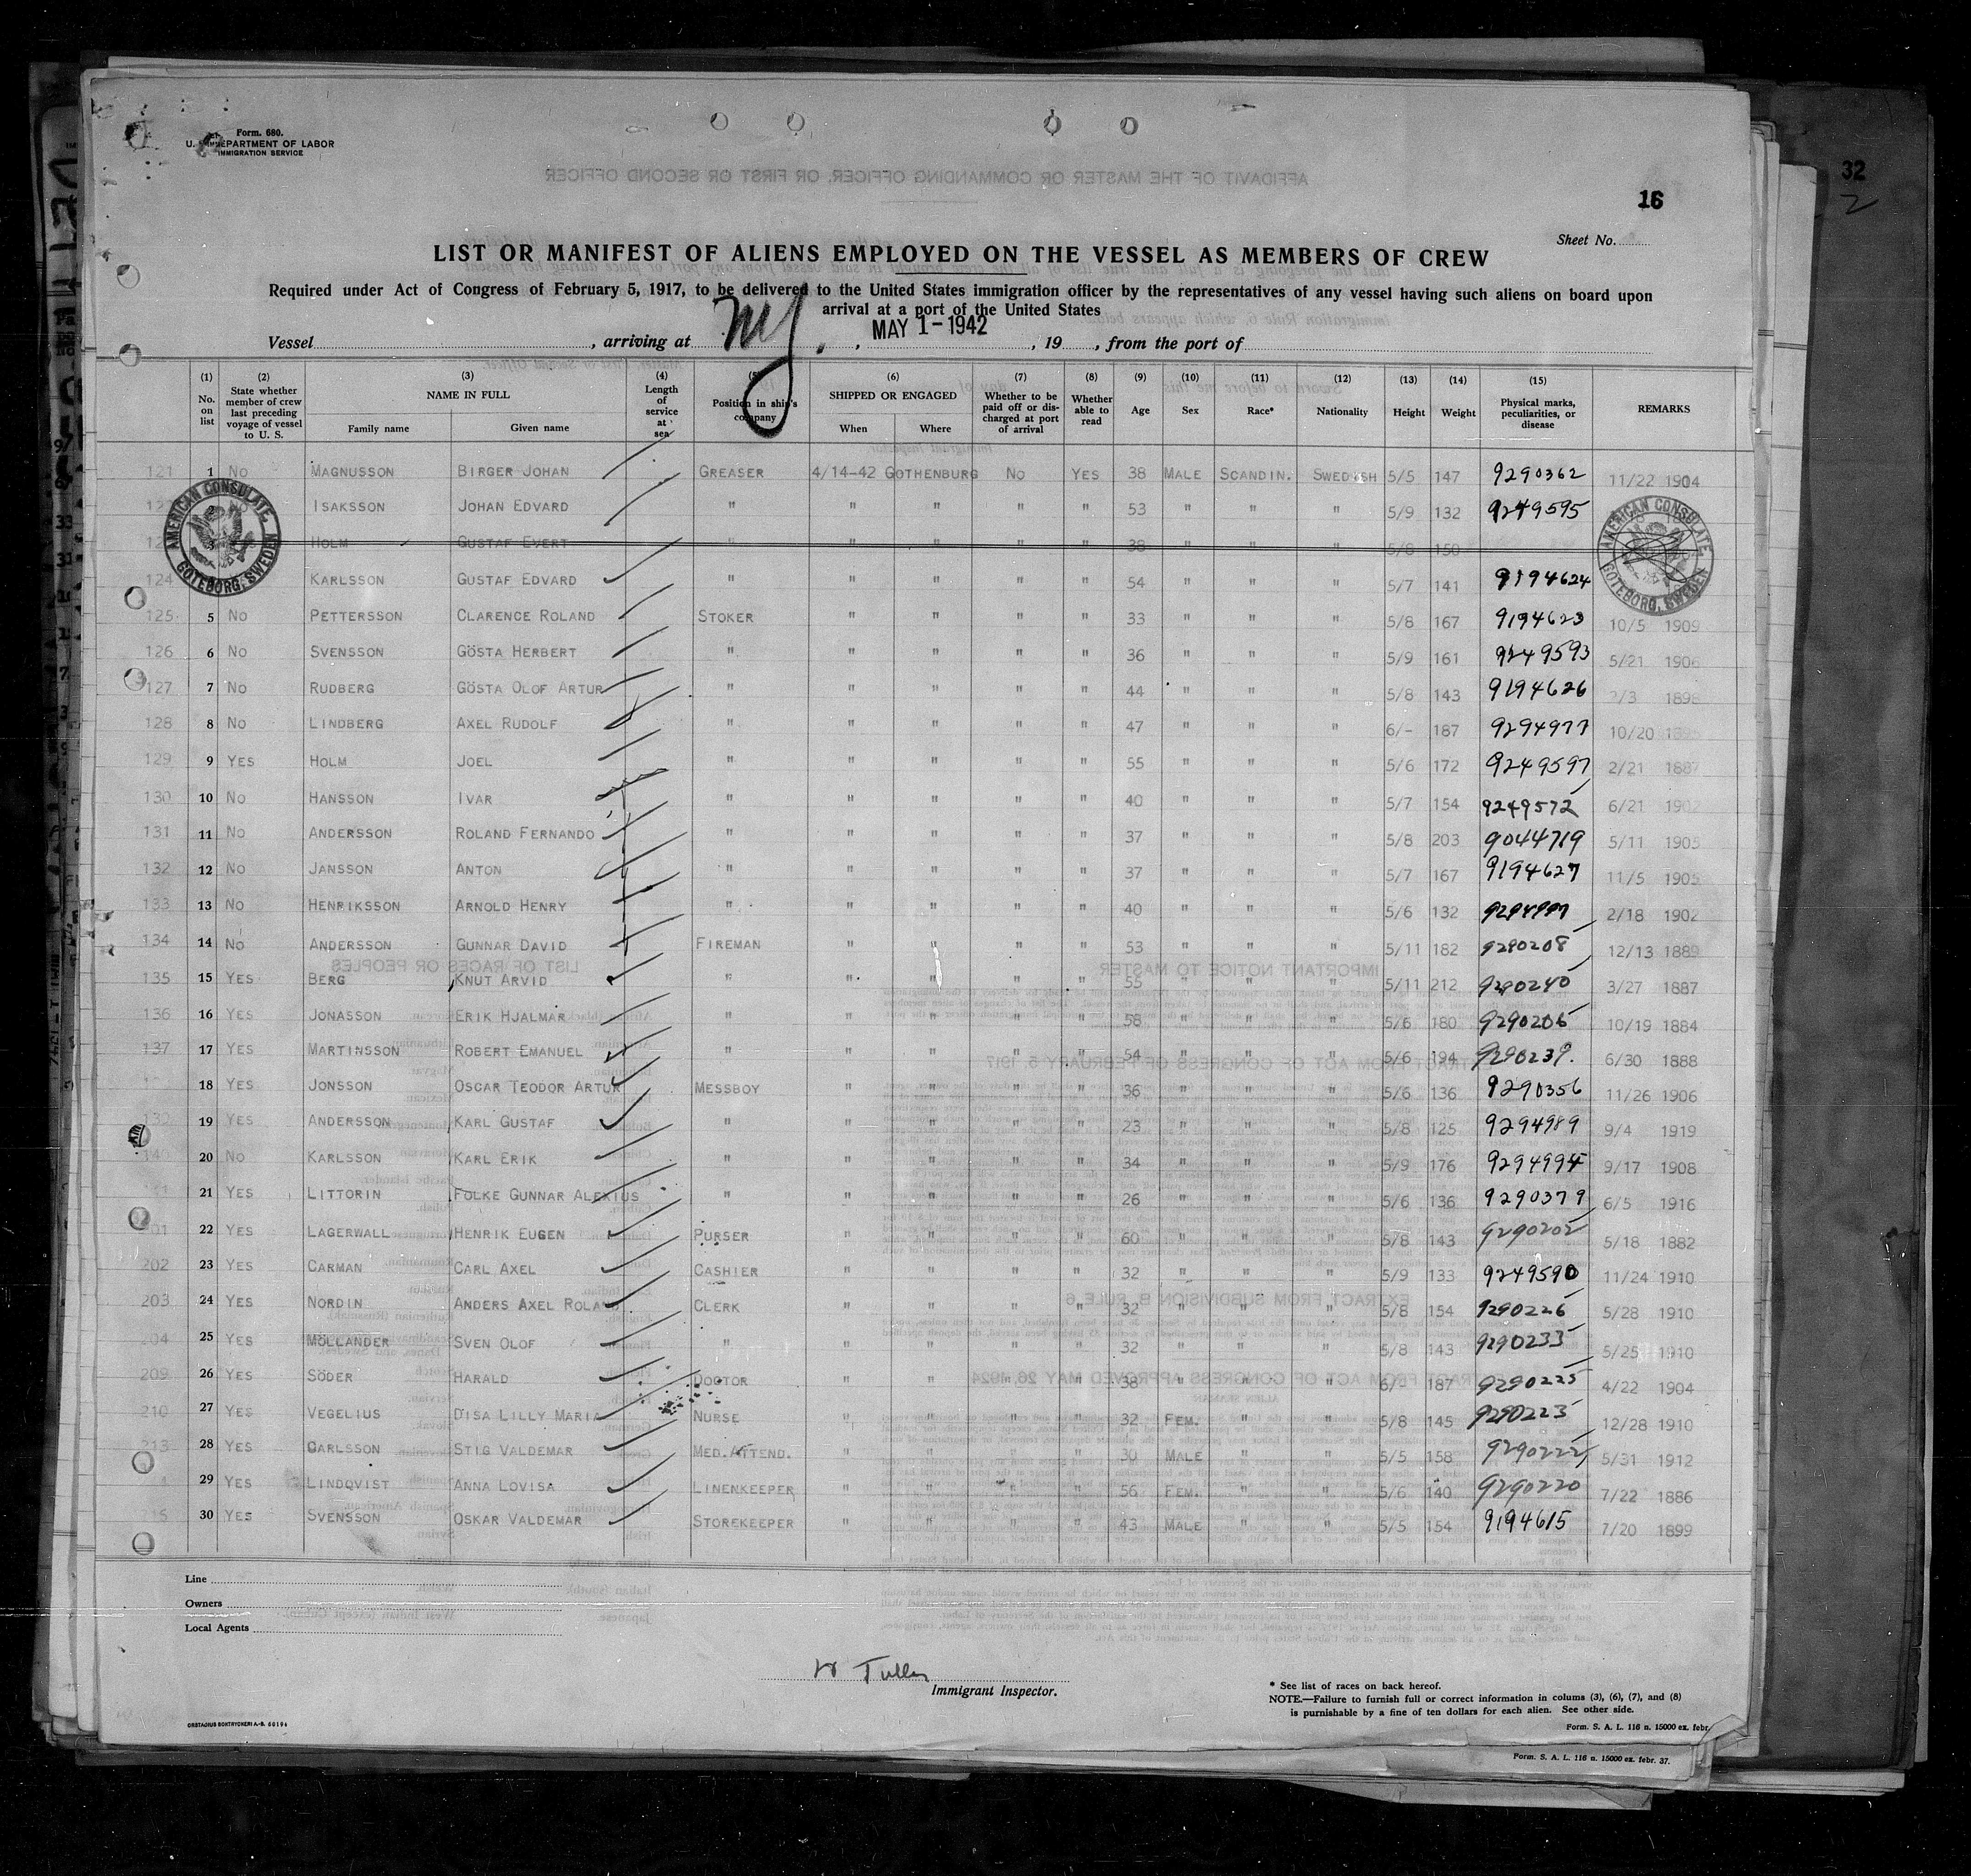 Form. 680.
U. S. DEPARTMENT OF LABOR
IMMIGRATION SERVICE
32
2
16
Sheet No.
LIST OR MANIFEST OF ALIENS EMPLOYED ON THE VESSEL AS MEMBERS OF CREW
Required under Act of Congress of February 5, 1917, to be delivered to the United States immigration officer by the representatives of any vessel having such aliens on board upon
arrival at a port of the United States
Vessel , arriving at NY , MAY 1-1942 , 19 , from the port of
(1) No. on list (2) State whether member of crew last preceding voyage of vessel to U. S. (3) NAME IN FULL Family name Given name (4) Length of service at sea (5) Position in ship's company (6) SHIPPED OR ENGAGED When Where (7) Whether to be paid off or discharged at port of arrival (8) Whether able to read (9) Age (10) Sex (11) Race* (12) Nationality (13) Height (14) Weight (15) Physical marks, peculiarities, or disease REMARKS
121 1 No MAGNUSSON BIRGER JOHAN GREASER 4/14-42 GOTHENBURG No YES 38 MALE SCANDIN. SWEDISH 5/5 147 9290362 11/22 1904
ISAKSSON JOHAN EDVARD " " " " " 53 " " " 5/9 132 9249595
HOLM GUSTAF EVERT " " " " " 38 " " " 5/8 150
124 KARLSSON GUSTAF EDVARD " " " " " 54 " " " 5/7 141 9194624
125 5 No PETTERSSON CLARENCE ROLAND STOKER " " " " 33 " " " 5/8 167 9194623 10/5 1909
126 6 No SVENSSON GÖSTA HERBERT " " " " " 36 " " " 5/9 161 9249593 5/21 1906
127 7 No RUDBERG GÖSTA OLOF ARTUR " " " " " 44 " " " 5/8 143 9194626 1898
128 8 No LINDBERG AXEL RUDOLF " " " " " 47 " " " 6/- 187 9294977 10/20
129 9 YES HOLM JOEL " " " " " 55 " " " 5/6 172 9249597 2/21 1887
130 10 No HANSSON IVAR " " " " " 40 " " " 5/7 154 9249572 6/21 1902
131 11 No ANDERSSON ROLAND FERNANDO " " " " " 37 " " " 5/8 203 9044719 5/11 1905
132 12 No JANSSON ANTON " " " " " 37 " " " 5/7 167 9194627 11/5 1905
133 13 No HENRIKSSON ARNOLD HENRY " " " " " 40 " " " 5/6 132 2/18 1902
134 14 No ANDERSSON GUNNAR DAVID FIREMAN " " " " 53 " " " 5/11 182 9290208 12/13 1889
135 15 YES BERG KNUT ARVID " " " " " 55 " " " 5/11 212 9290240 3/27 1887
136 16 YES JONASSON ERIK HJALMAR " " " " " 58 " " " 5/6 180 9290206 10/19 1884
137 17 YES MARTINSSON ROBERT EMANUEL " " " " " 54 " " " 5/6 194 9290239. 6/30 1888
18 YES JONSSON OSCAR TEODOR ARTUR MESSBOY " " " " 36 " " " 5/6 136 9290356 11/26 1906
19 YES ANDERSSON KARL GUSTAF " " " " " 23 " " " 5/8 125 9294989 9/4 1919
20 No KARLSSON KARL ERIK " " " " " 34 " " " 5/9 176 9294994 9/17 1908
21 YES LITTORIN FOLKE GUNNAR ALEXIUS " " " " " 26 " " " 5/6 136 9290379 6/5 1916
22 YES LAGERWALL HENRIK EUGEN PURSER " " " " 60 " " " 5/8 143 9290202 5/18 1882
202 23 YES CARMAN CARL AXEL CASHIER " " " " 32 " " " 5/9 133 9249590 11/24 1910
203 24 YES NORDIN ANDERS AXEL ROLAND CLERK " " " " 32 " " " 5/8 154 9290226 5/28 1910
204 25 YES MÖLLANDER SVEN OLOF " " " " " 32 " " " 5/8 143 9290233 5/25 1910
209 26 YES SÖDER HARALD DOCTOR " " " " 38 " " " 6/- 187 9290225 4/22 1904
210 27 YES VEGELIUS DISA LILLY MARIA NURSE " " " " 32 FEM. " " 5/8 145 9290223 12/28 1910
213 28 YES CARLSSON STIG VALDEMAR MED. ATTEND. " " " " 30 MALE " " 5/5 158 9290222 5/31 1912
29 YES LINDQVIST ANNA LOVISA LINENKEEPER " " " " 56 FEM. " " 5/6 140 9290220 7/22 1886
215 30 YES SVENSSON OSKAR VALDEMAR STOREKEEPER " " " " 43 MALE " " 5/5 154 9194615 7/20 1899
AMERICAN CONSULATE, GOTEBORG, SWEDEN
AMERICAN CONSULATE, GOTEBORG, SWEDEN
Line
Owners
Local Agents
Immigrant Inspector.
* See list of races on back hereof.
NOTE.—Failure to furnish full or correct information in colums (3), (6), (7), and (8)
is punishable by a fine of ten dollars for each alien. See other side.
Form. S. A. L. 116 n. 15000 ex. febr.
Form. S. A. L. 116 n. 15000 ex. febr. 37.